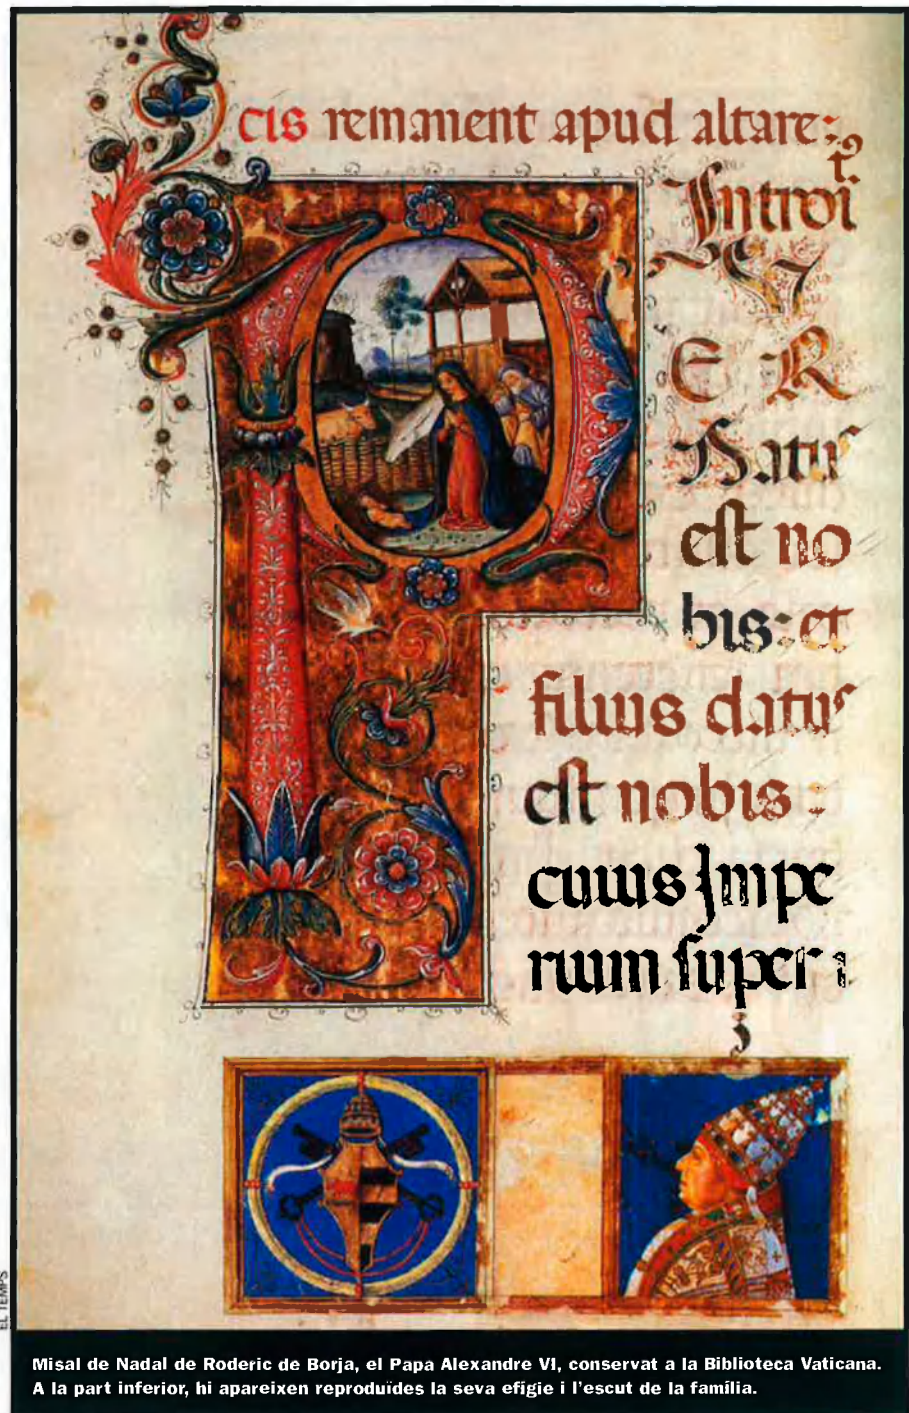 cis remanent apud altare:
Introit.
P V
E R
Natus
est no
bis: et
filius datus
est nobis:
cuius Impe
rium super
EL TEMPS
Misal de Nadal de Roderic de Borja, el Papa Alexandre VI, conservat a la Biblioteca Vaticana.
A la part inferior, hi apareixen reproduïdes la seva efígie i l'escut de la família.